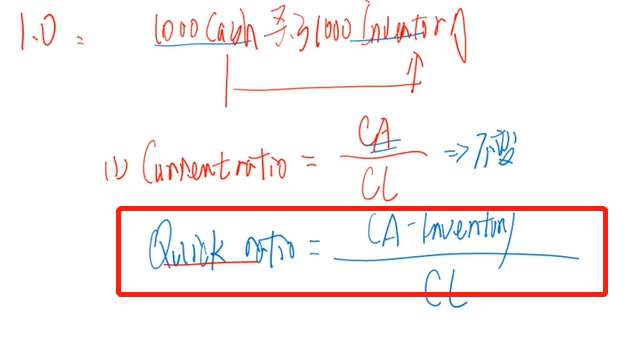 1.0: 1000 Cash 买了1000 Inventory
(1) Current ratio = CA / CL => 不变
Quick ratio = CA - Inventory / CL